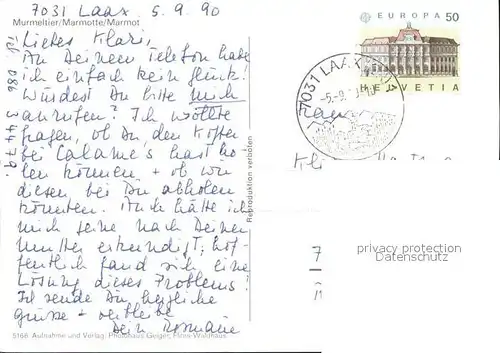 7031 Laax 5.9.90
Murmeltier/Marmotte/Marmot
Liebes Klari,
An Deinem Telefon habe
ich einfach kein Glück!
Würdest Du bitte mich
anrufen? Ich wollte
fragen, ob Du den Koffer
bei Calame's hast ho-
len können + ob wir
diesen bei Dir abholen
könnten. Auch hätte ich
mich gerne nach Deiner
Mutter erkundigt; hof-
fentlich fand sich eine
Lösung dieses Problems!
Ich sende Dir herzliche
Grüsse + verbleibe
Dein Romaine
Tel. 086
5166 Aufnahme und Verlag: Photohaus Geiger, Flims-Waldhaus
Reproduktion verboten
EUROPA 50
HELVETIA
7031 LAAX
-5.-9.
Laax
7
privacy protection
Datenschutz